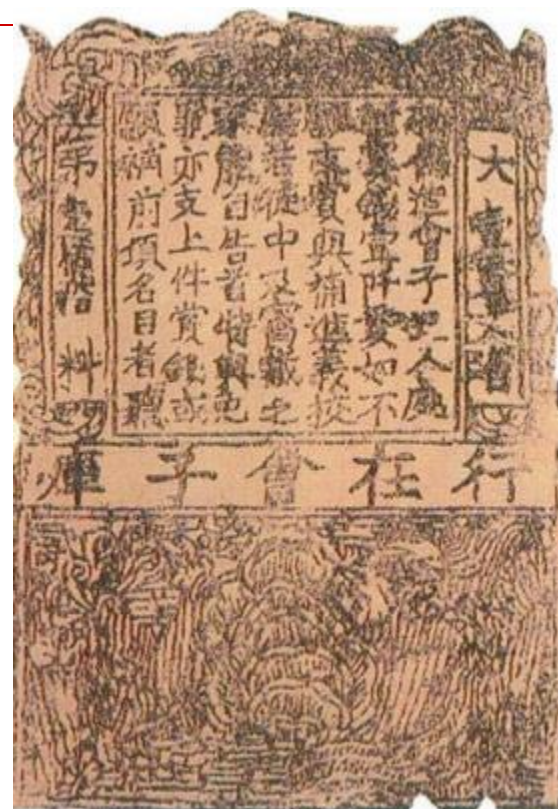 大壹貫文省
偽造會子犯人處
斬賞錢壹阡貫如不
支賞與補進義校
尉若徒中及窩藏之
家能自告首特與免
罪亦支上件賞錢或
願補前項名目者聽
第拾料
行在會子庫